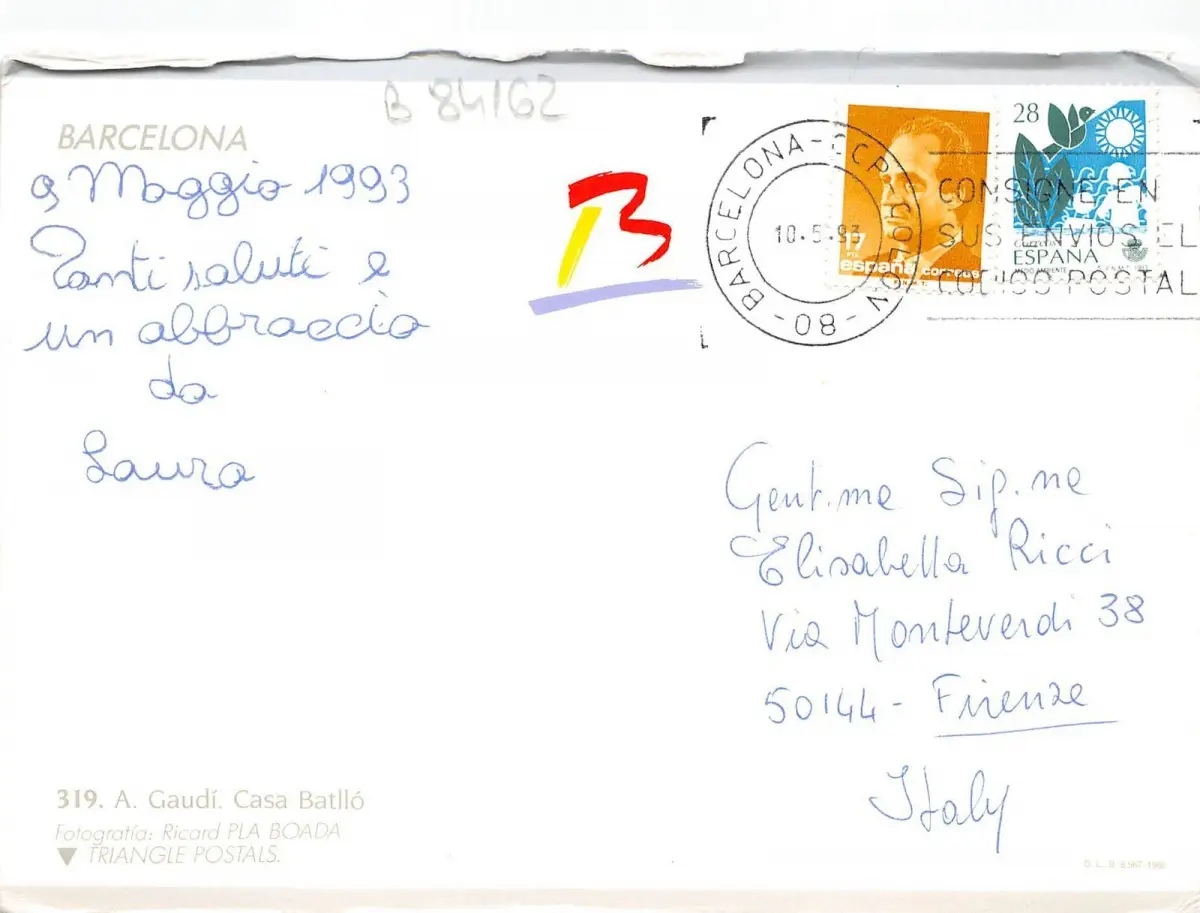 B 84162
BARCELONA
9 Maggio 1993
Tanti saluti e
un abbraccio
da
Laura
B
BARCELONA-CCP
80-
10-5-93
17
PTA
españa correos
28
Correos
ESPAÑA
MEDIO AMBIENTE
CONSIGNE EN
SUS ENVIOS EL
CODIGO POSTAL
Gent.ma Sig.na
Elisabella Ricci
Via Monteverdi 38
50144 - Firenze
Italy
319. A. Gaudí. Casa Batlló
Fotografía: Ricard PLA BOADA
TRIANGLE POSTALS.